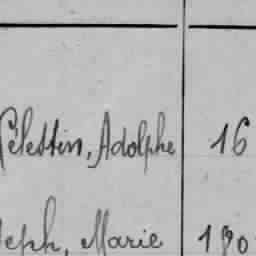 Célestin, Adolphe 16
seph, Marie 190